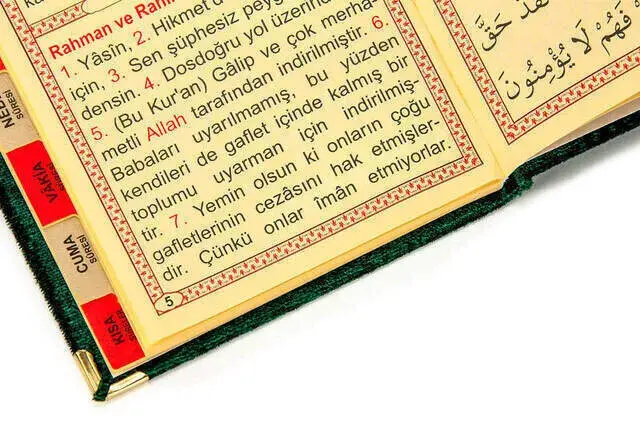 Rahman ve Rahîm
1. Yâsîn, 2. Hikmet
için, 3. Sen şüphesiz
densin. 4. Dosdoğru yol üzerinde
5. (Bu Kur'an) Gâlip ve çok merha-
metli Allah tarafından indirilmiştir. 6.
Babaları uyarılmamış, bu yüzden
kendileri de gaflet içinde kalmış bir
toplumu uyarman için indirilmiş-
tir. 7. Yemin olsun ki onların çoğu
gafletlerinin cezâsını hak etmişler-
dir. Çünkü onlar îmân etmiyorlar.
5
SÛRESİ
VÂKIA
SÛRESİ
CUMA
SÛRESİ
KISA
SÛRELER
حَقَّ
فَهُمْ لَا يُؤْمِنُونَ